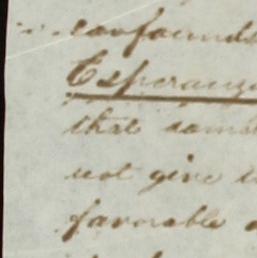 confounds
Esperanz
that same
not give
favorable